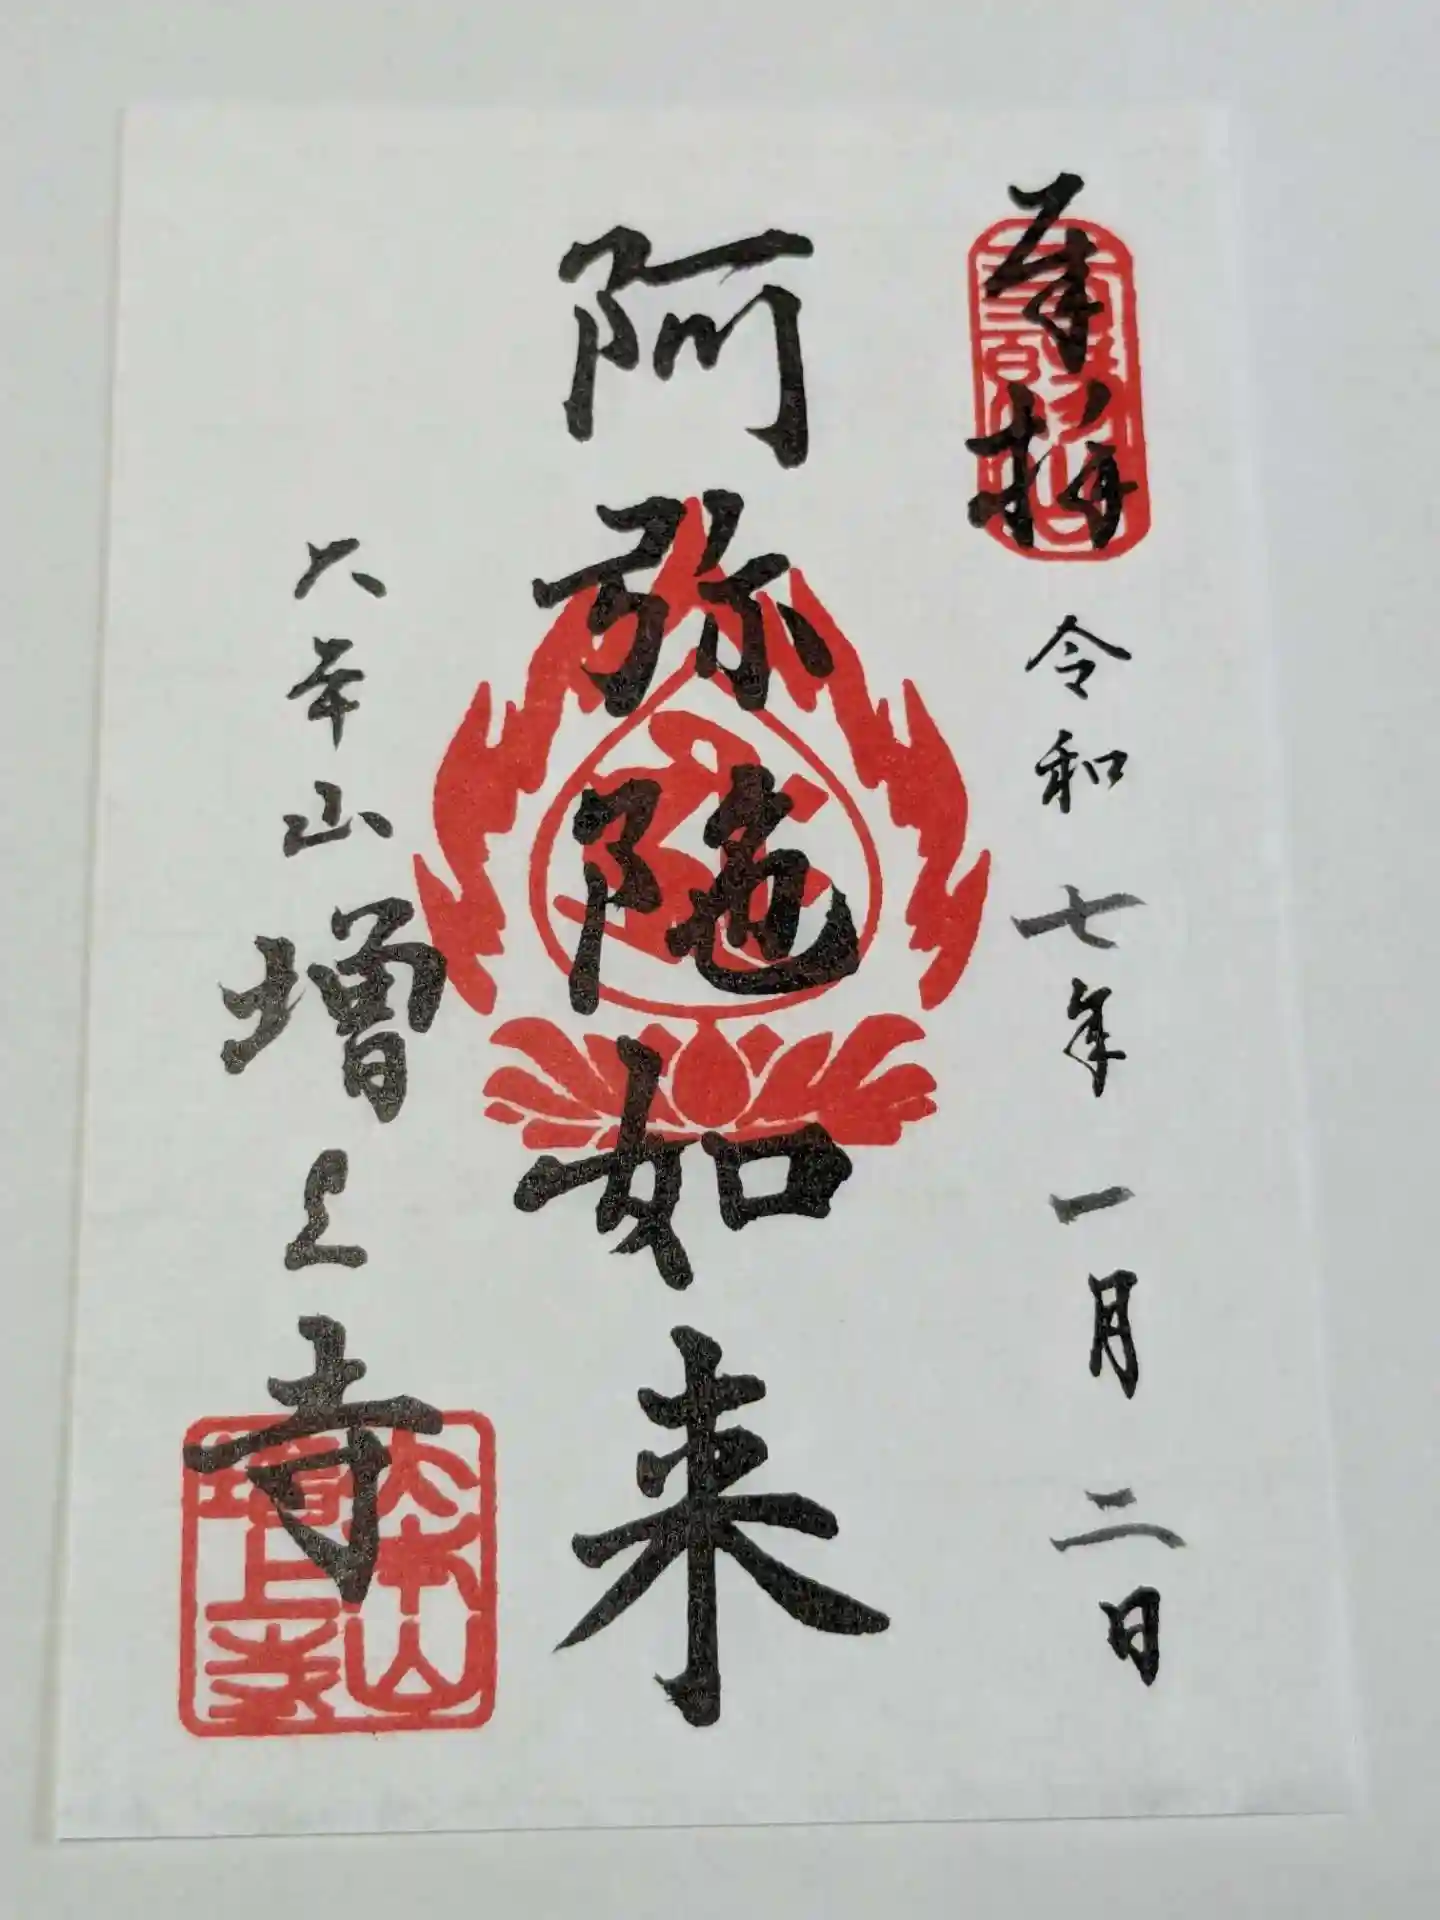 奉拝
令和七年一月二日
阿弥陀如来
大本山増上寺
大本山
増上寺